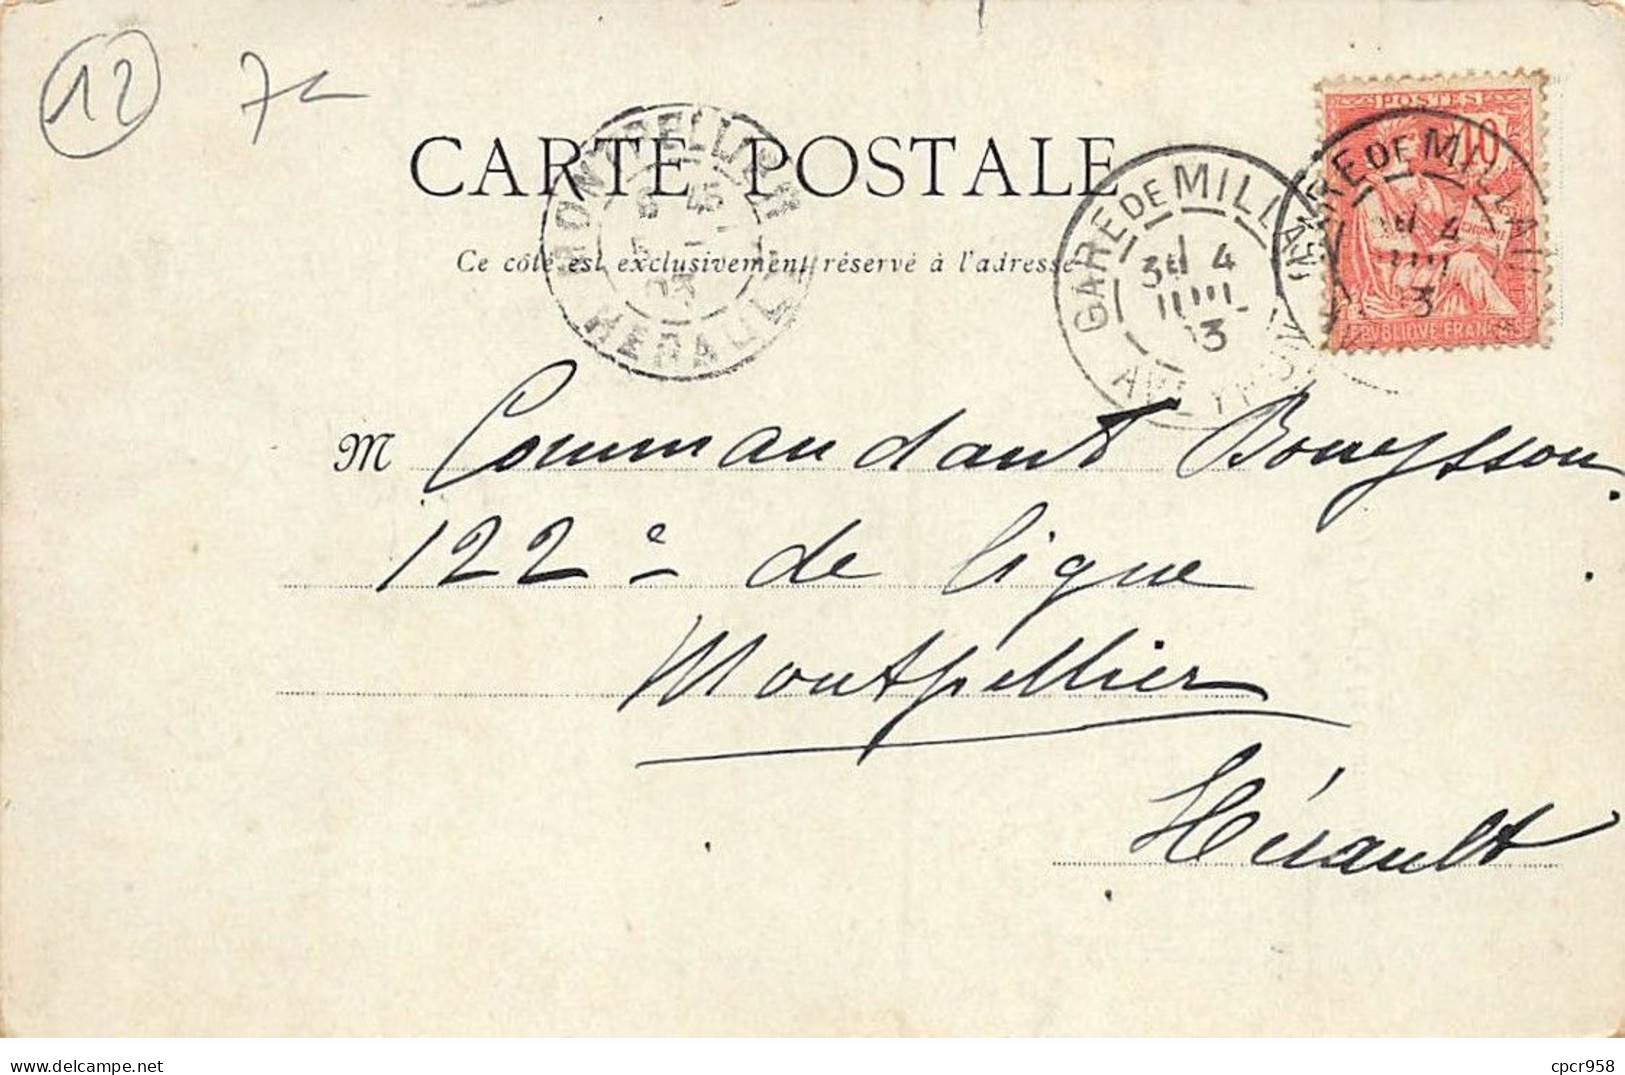 12 7
CARTE POSTALE
Ce côté est exclusivement réservé à l'adresse
MONTPELLIER
HERAULT
GARE DE MILLAU
3E 4
JUIL
03
AVEYRON
POSTES
10
GARE DE MILLAU
4
REPUBLIQUE FRANÇAISE
M Commandant Bouysson
122e de ligne
Montpellier
Hérault
delcampe.net
cpcr958